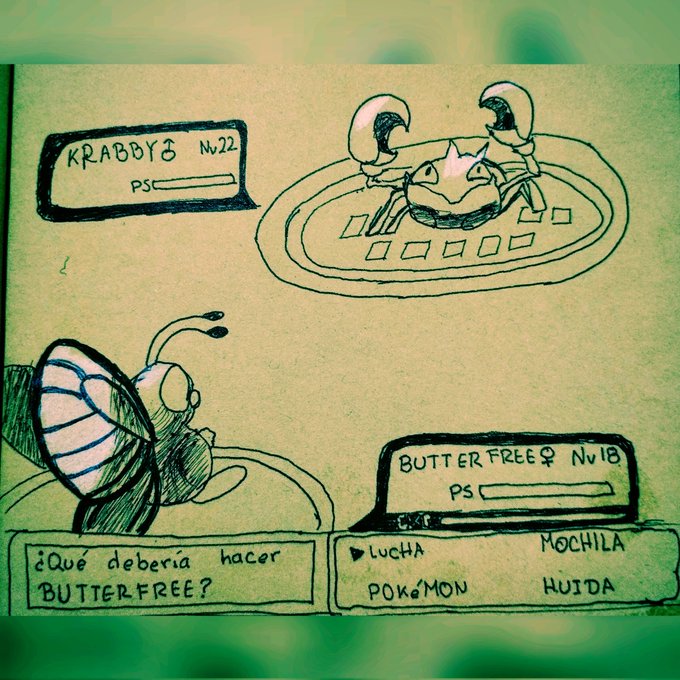 KRABBY♂ Nv22
PS
BUTTERFREE♀ Nv18
PS
EXP
¿Qué debería hacer
BUTTERFREE?
▶LUCHA MOCHILA
POKéMON HUIDA